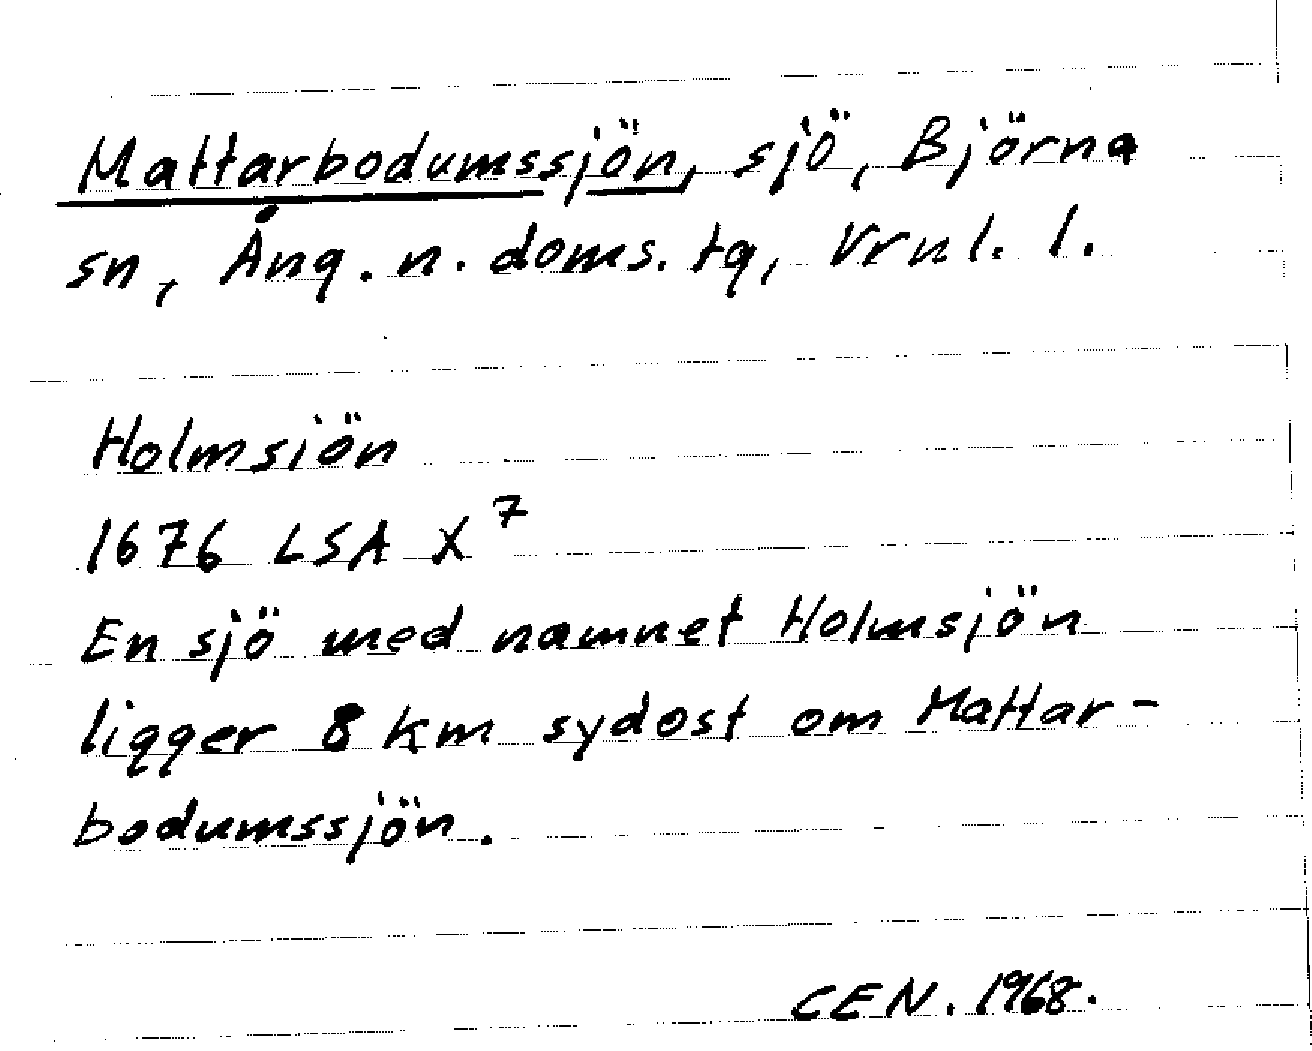 Mattarbodumssjön, sjö, Björna
sn, Ång. n. doms. tg, Vrnl. l.
Holmsiön
1676 LSA X⁷
En sjö med namnet Holmsjön
ligger 8 km sydost om Mattar-
bodumssjön.
CEN. 1968.